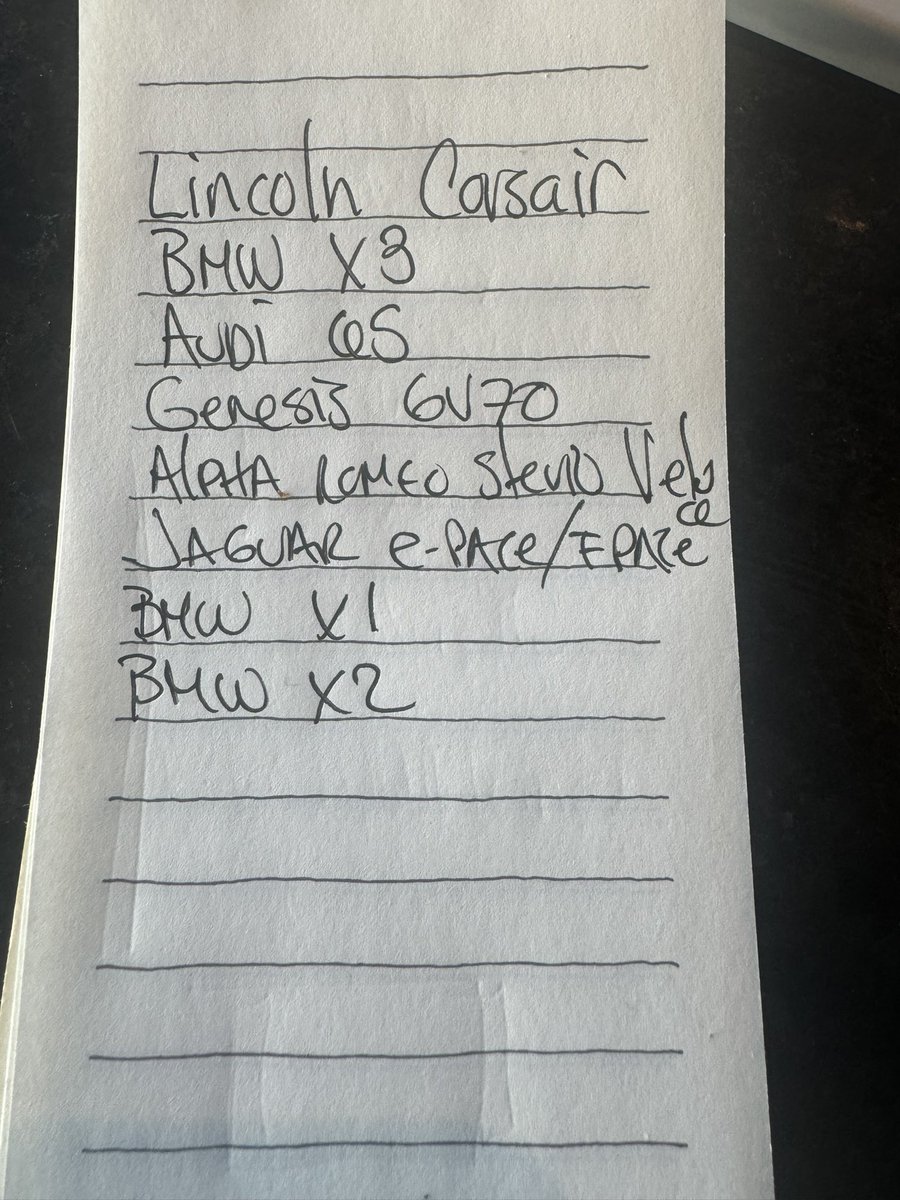 Lincoln Corsair
BMW X3
AUDi Q5
Genesis GV70
ALPHA ROMEO Stelvio Veloce
JAGUAR e-PACe/FPACe
BMW X1
BMW X2